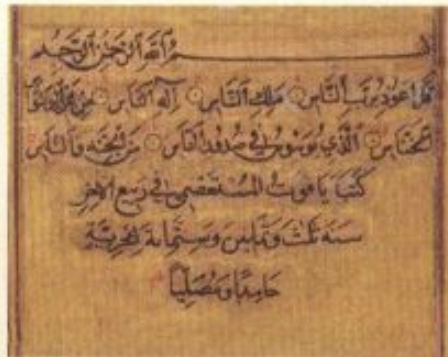 بسم الله الرحمن الرحيم
قل اعوذ برب الناس ملك الناس اله الناس من شر الوسواس
الخناس الذي يوسوس في صدور الناس من الجنة والناس
كتبه ياقوت المستعصمي في ربيع الاخر
سنة ثلث وثمانين وستمائة هجرية
حامدا ومصليا